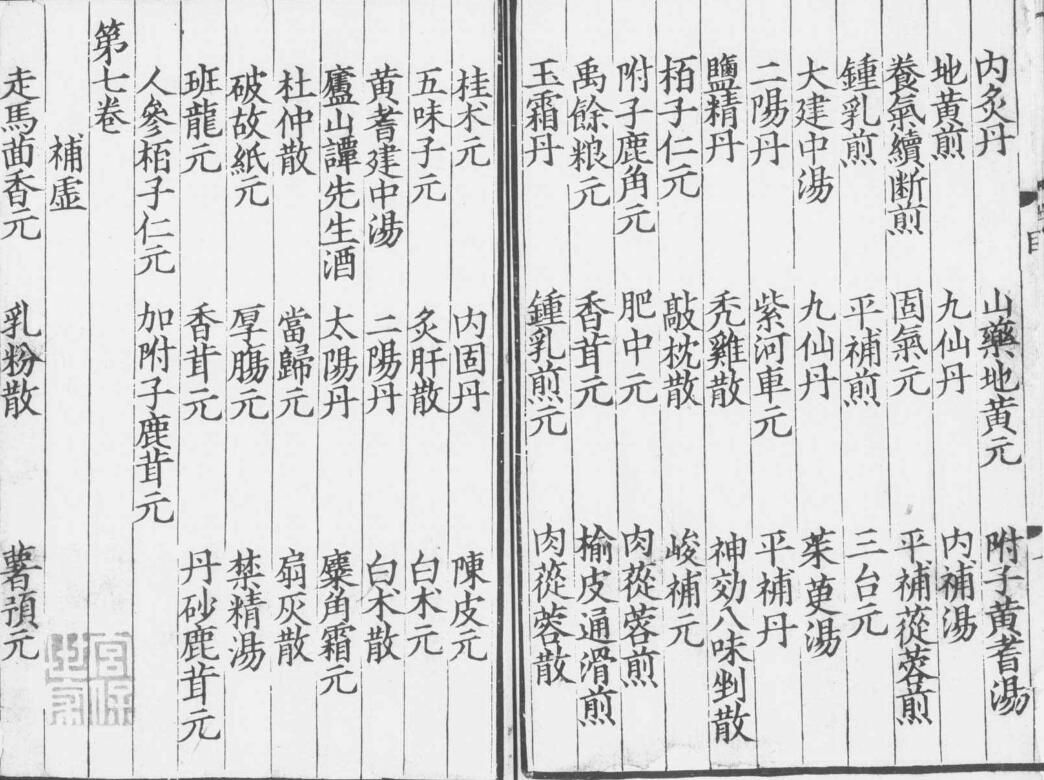 内灸丹　山藥地黄元　附子黄耆湯
地黄煎　九仙丹　内補湯
養氣續断煎　固氣元　平補蓯蓉煎
鍾乳煎　平補煎　三台元
大建中湯　九仙丹　茱萸湯
二陽丹　紫河車元　平補丹
鹽精丹　秃雞散　神効八味剉散
栢子仁元　敲枕散　峻補元
附子鹿角元　肥中元　肉蓯蓉煎
禹餘粮元　香茸元　榆皮通滑煎
玉霜丹　鍾乳煎元　肉蓯蓉散
桂朮元　内固丹　陳皮元
五味子元　炙肝散　白朮元
黄耆建中湯　二陽丹　白朮散
廬山譚先生酒　太陽丹　麋角霜元
杜仲散　當歸元　扇灰散
破故紙元　厚膓元　禁精湯
班龍元　香茸元　丹砂鹿茸元
人參栢子仁元　加附子鹿茸元
第七卷
補虚
走馬茴香元　乳粉散　薯蕷元